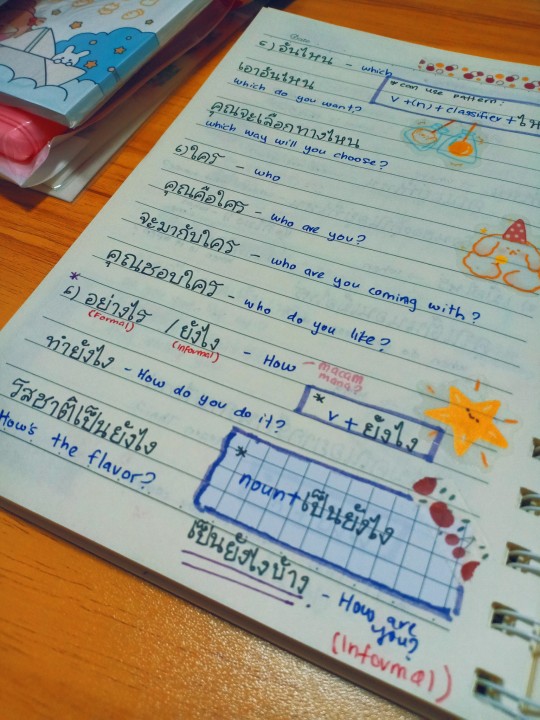 c) อันไหน - which
เอาอันไหน
which do you want?
* can use pattern:
V + (n) + classifier + ไห
คุณจะเลือกทางไหน
which way will you choose?
ใคร - who
คุณคือใคร - who are you?
จะมากับใคร - who are you coming with?
คุณชอบใคร - who do you like?
* อย่างไร / ยังไง - How
(Formal) (Informal)
macam mana?
ทำยังไง - How do you do it?
* V + ยังไง
รสชาติเป็นยังไง
How's the flavor?
* noun + เป็นยังไง
เป็นยังไงบ้าง - How are you?
(Informal)